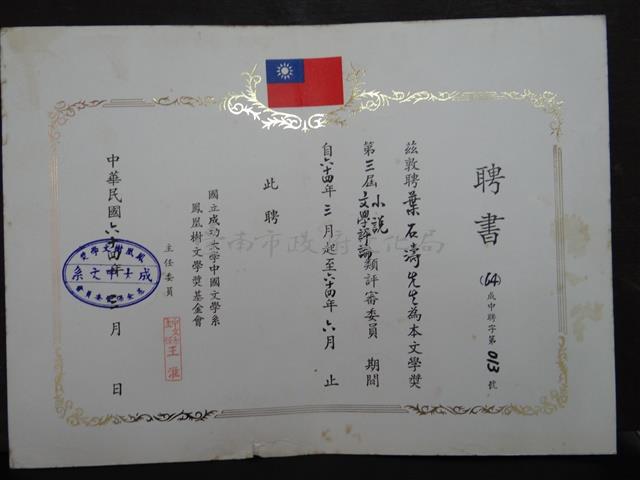 聘書
(64)成中聘字第013號
茲敦聘葉石濤先生為本文學獎
第三屆小說文學評論類評審委員 期間
自六十四年三月起至六十四年六月止
此聘
國立成功大學中國文學系
鳳凰樹文學獎基金會
主任委員
王淮
中華民國六十四年三月 日
鳳凰樹文學獎
成大中文系
臺南市政府文化局